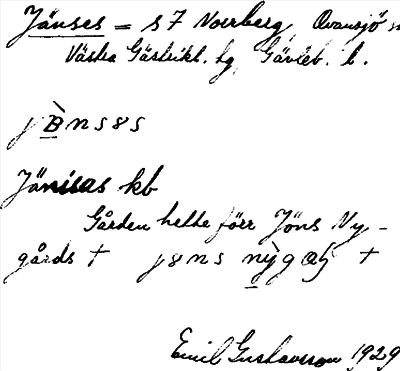 Jänses = s 7 Norrberg, Ovansjö sn
Västra Gästrikl. hg, Gävleb. l.
Jänisas kb
Gården hette förr Jöns Ny-
gårds †
Emil Gustavsson 1929